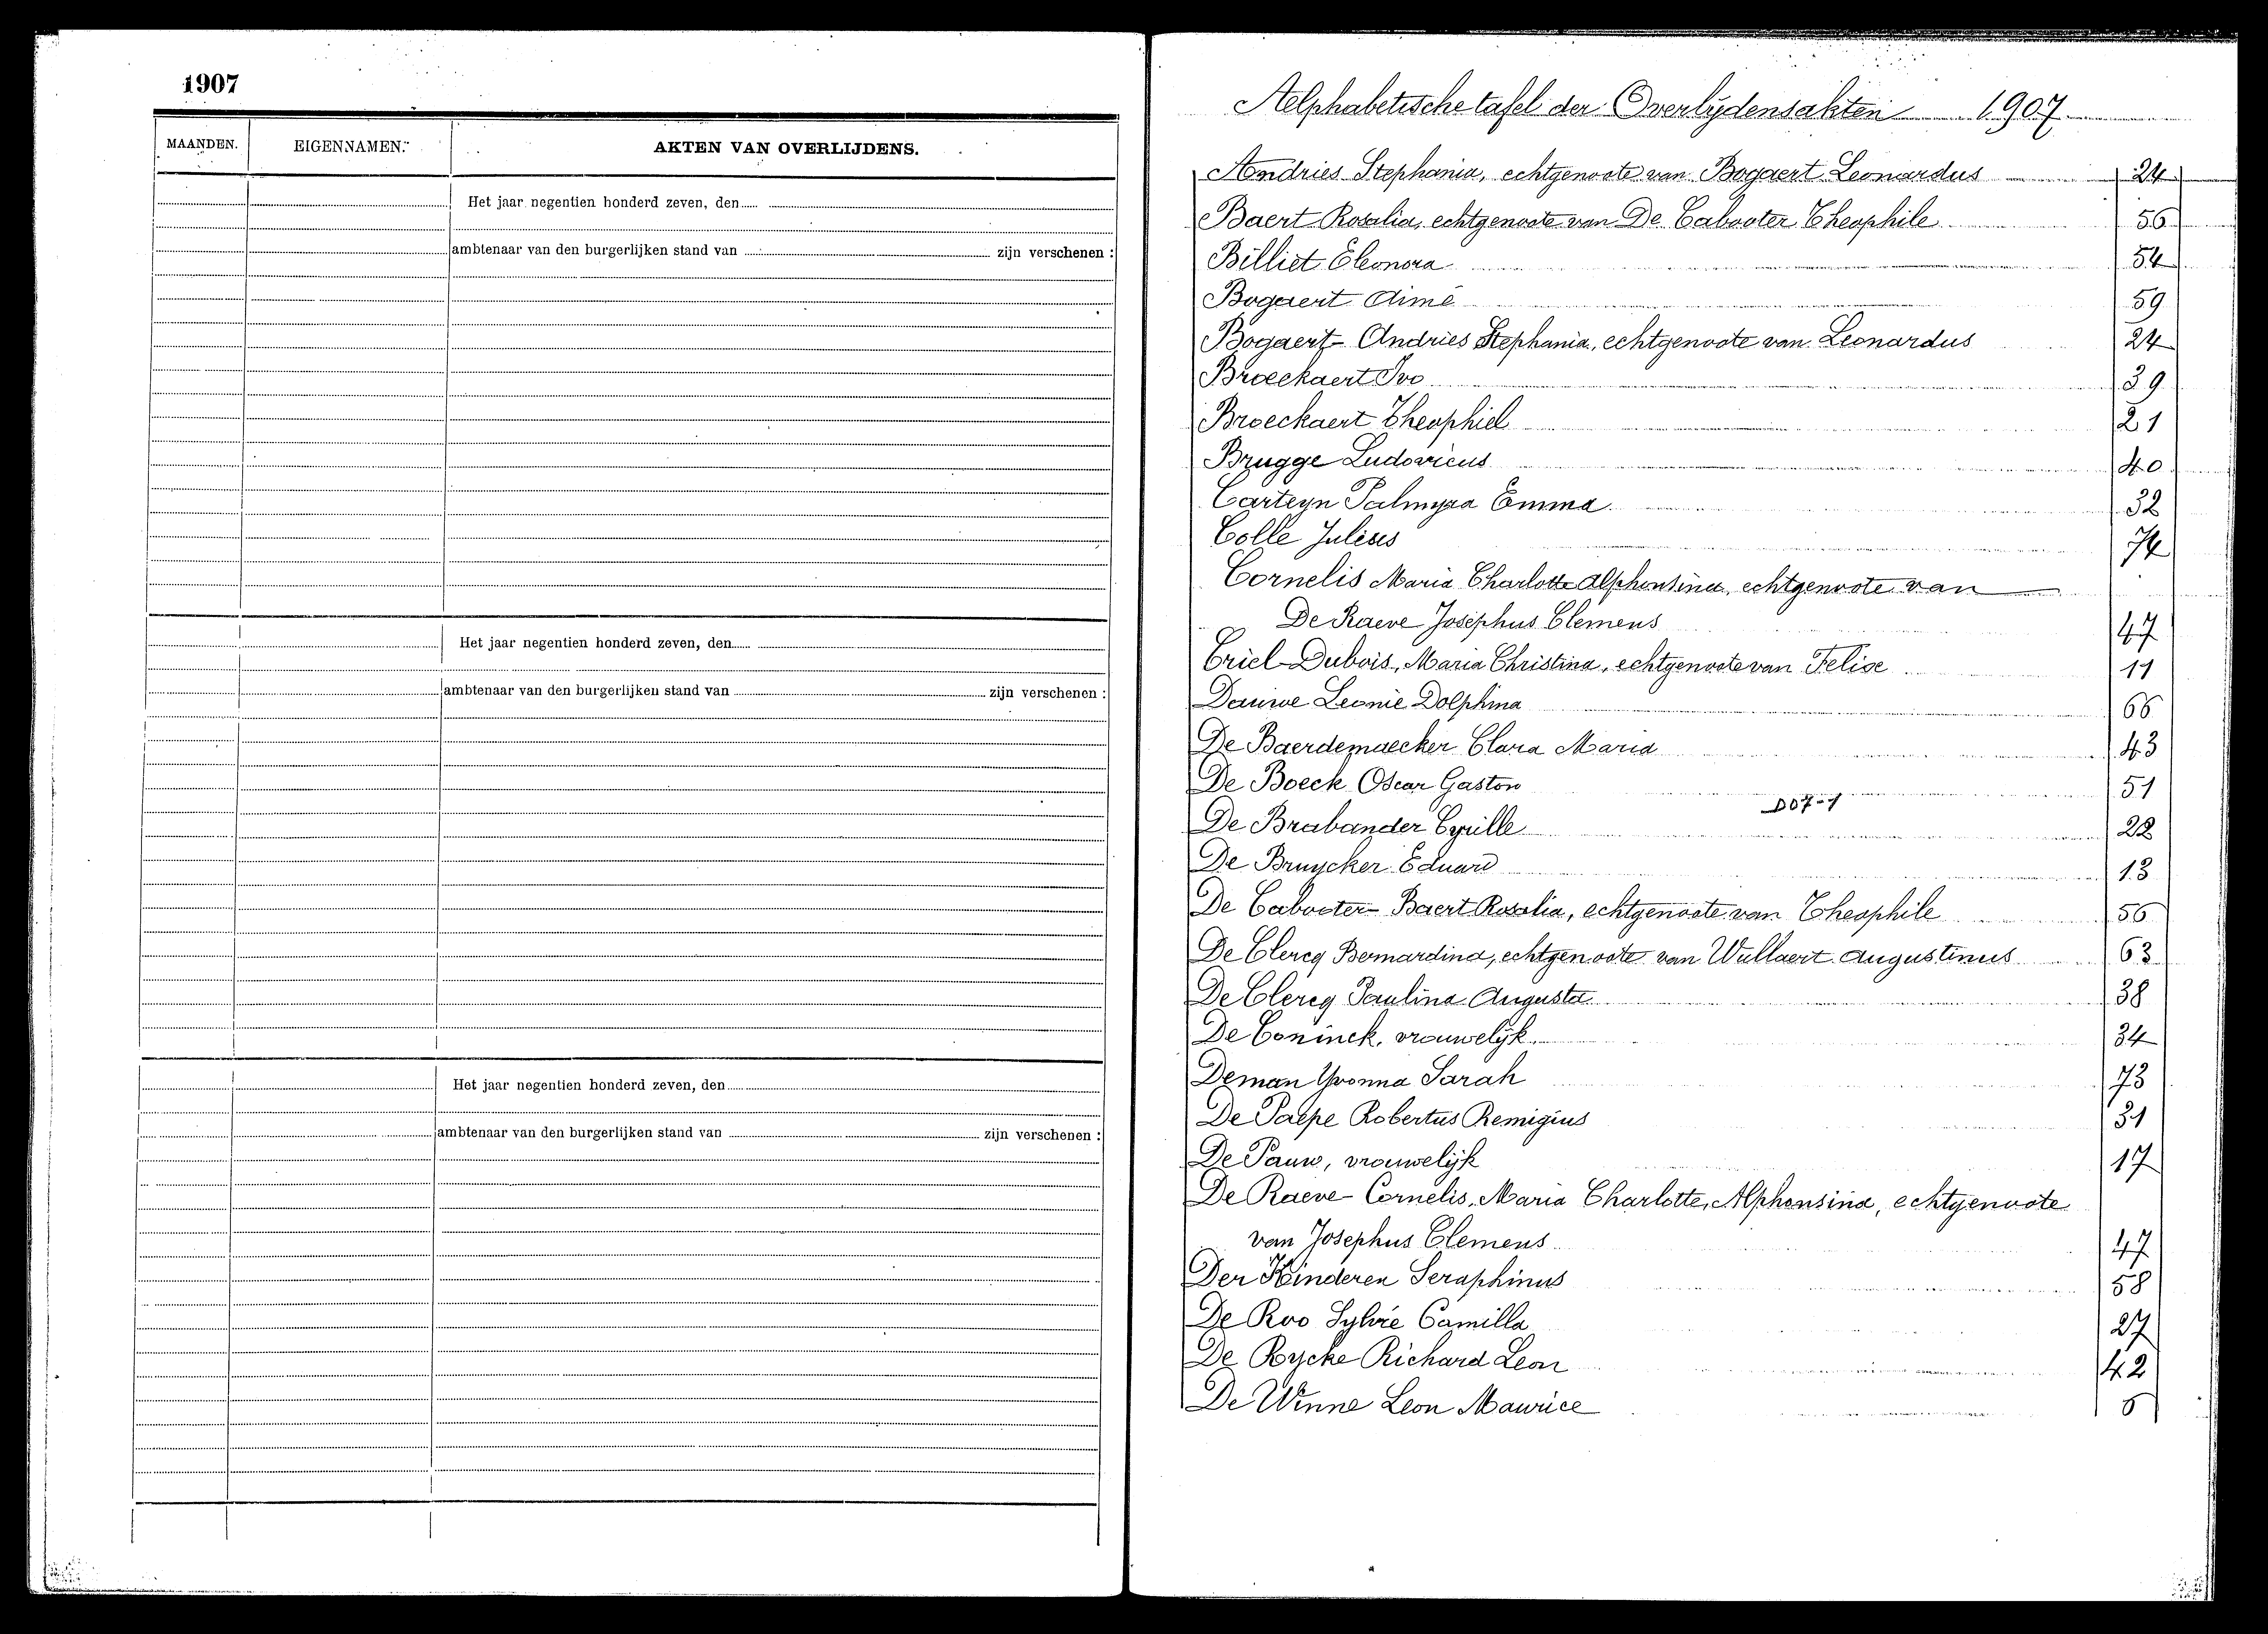 1907
MAANDEN. EIGENNAMEN. AKTEN VAN OVERLIJDENS.
Het jaar negentien honderd zeven, den
ambtenaar van den burgerlijken stand van zijn verschenen :
Het jaar negentien honderd zeven, den
ambtenaar van den burgerlijken stand van zijn verschenen :
Het jaar negentien honderd zeven, den
ambtenaar van den burgerlijken stand van zijn verschenen :
Aelphabetische tafel der Overlydensakten 1907
Andries Stephania, echtgenoote van Bogaert Leonardus 24
Baert Rosalia, echtgenoote van De Cabooter Theophile 56
Billiet Eleonora 54
Bogaert Aimé 59
Bogaert-Andries Stephania, echtgenoote van Leonardus 24
Broeckaert Ivo 39
Broeckaert Theophiel 21
Brugge Ludovicus 40
Carteyn Palmyra Emma 32
Colle Julius 74
Cornelis Maria Charlotte Alphonsina, echtgenoote van
De Raeve Josephus Clemens 47
Criel-Dubois, Maria Christina, echtgenoote van Felise 11
Dauwe Leonie Dolphina 66
De Baerdemaecker Clara Maria 43
De Boeck Oscar Gaston 51
D07-1
De Brabander Cyrille 22
De Bruycker Eduard 13
De Cabooter-Baert Rosalia, echtgenoote van Theophile 56
De Clercq Bernardina, echtgenoote van Wullaert Augustinus 63
De Clercq Paulina Augusta 38
De Coninck, vrouwelijk 34
Deman Yvonna Sarah 73
De Paepe Robertus Remigius 31
De Pauw, vrouwelijk 17
De Raeve-Cornelis, Maria Charlotte, Alphonsina, echtgenoote
van Josephus Clemens 47
Der Kinderen Seraphinus 58
De Roo Sylvie Camilla 27
De Rycke Richard Leon 42
De Winne Leon Maurice